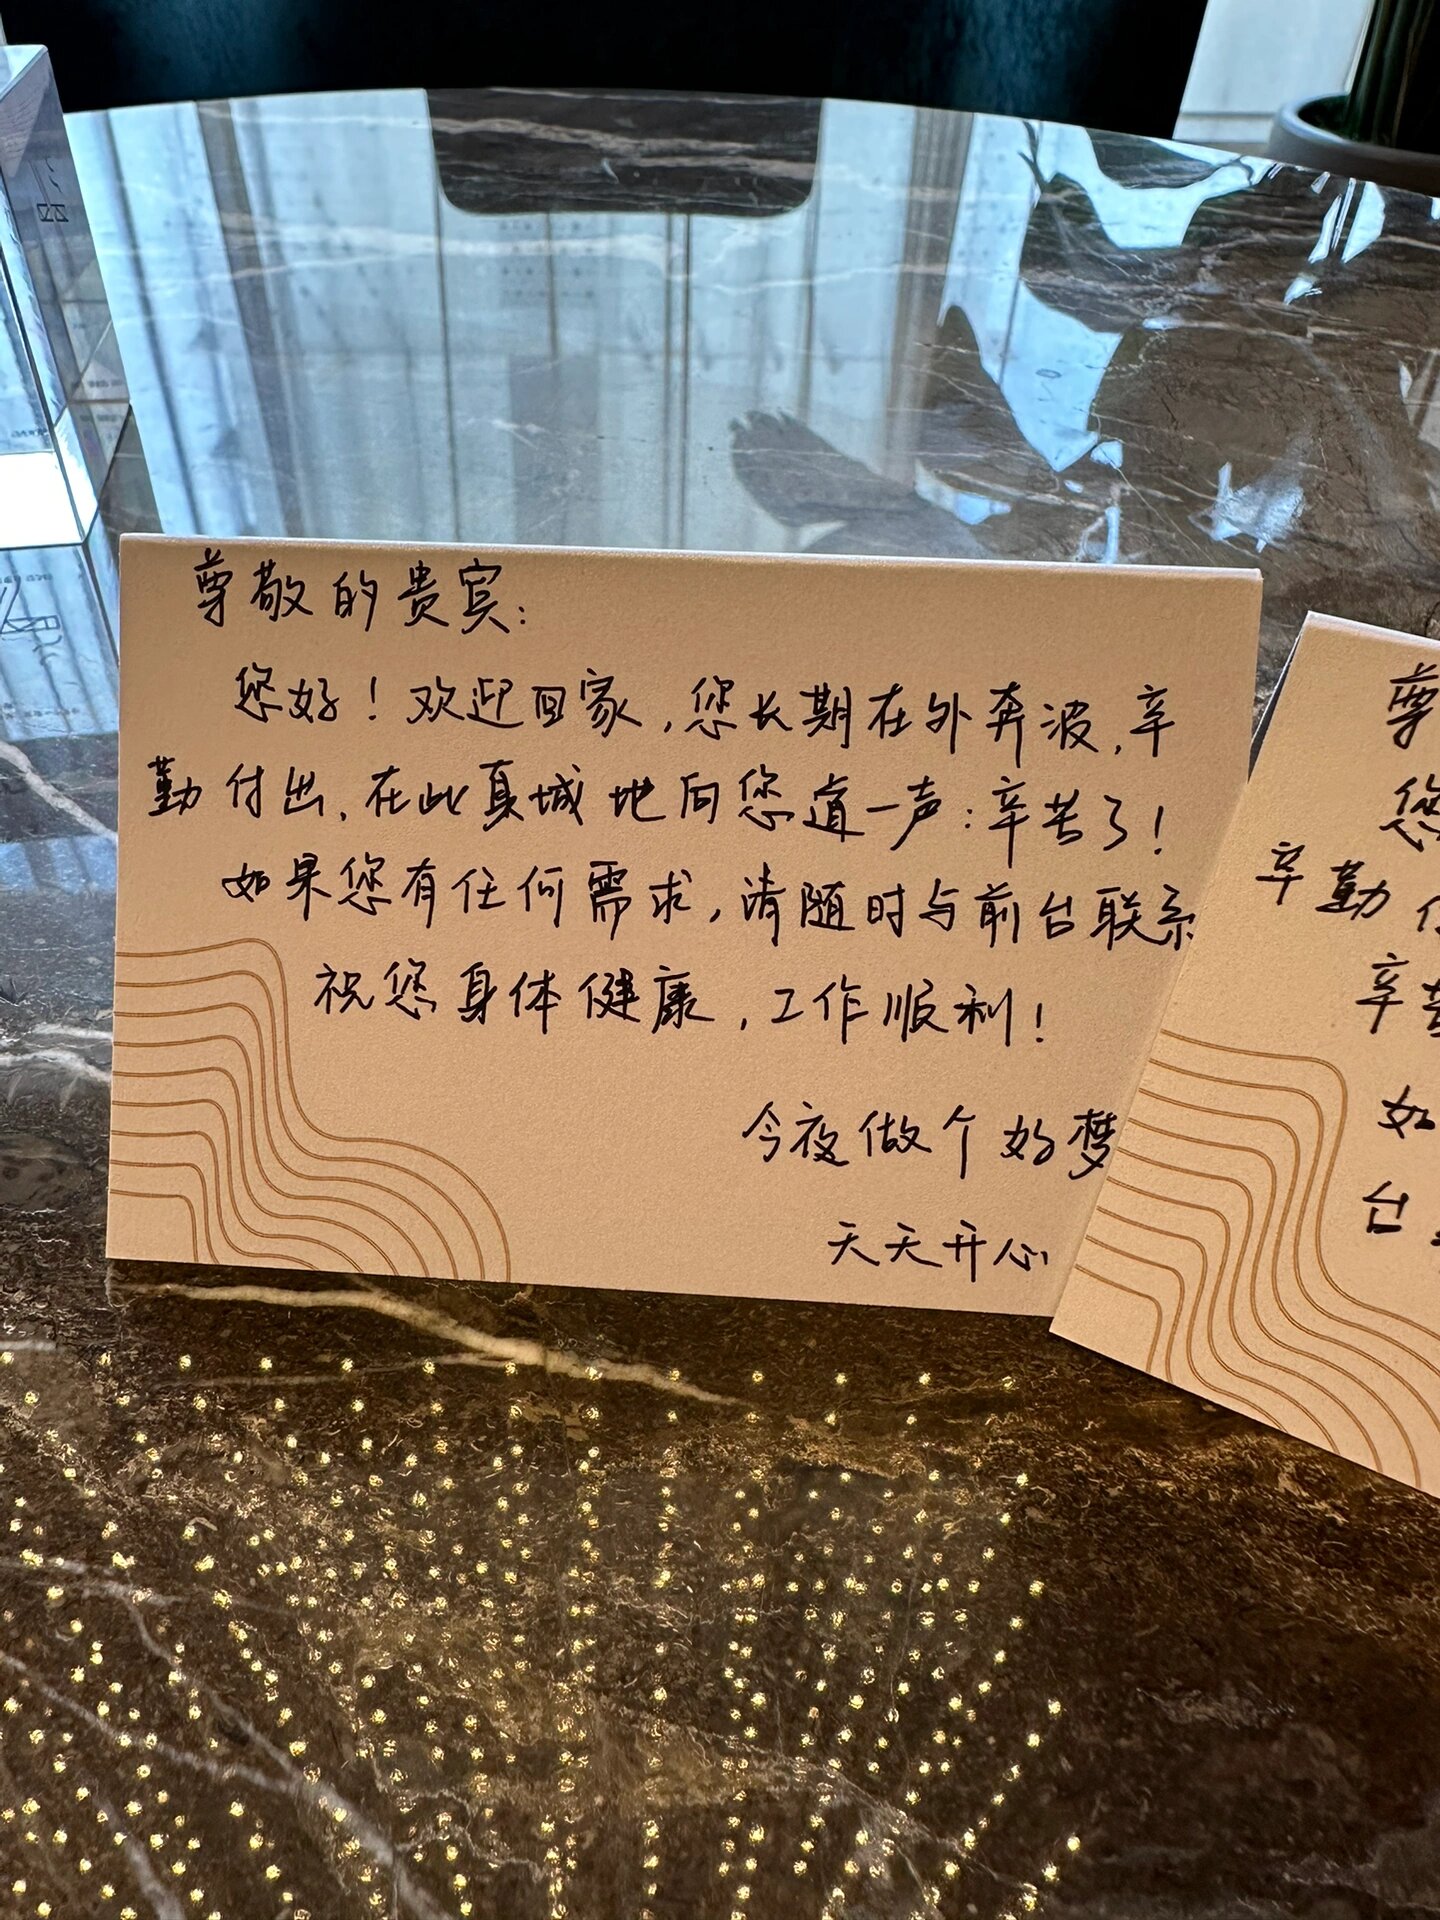 尊敬的贵宾：
您好！欢迎回家，您长期在外奔波，辛
勤付出，在此真城地向您道一声：辛苦了！
如果您有任何需求，请随时与前台联系
祝您身体健康，工作顺利！
今夜做个好梦
天天开心
尊
您
辛勤付
辛苦
如
台